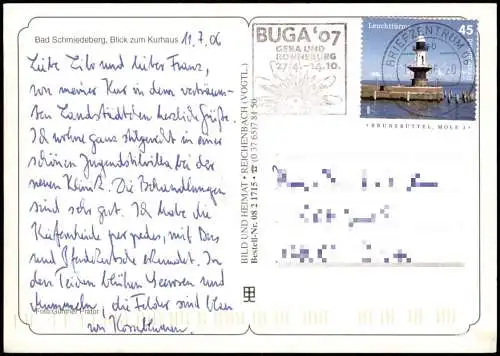 Bad Schmiedeberg, Blick zum Kurhaus
11.7.06
Liebe und lieber Franz,
von meiner Kur in dem vertraum-
ten Landstädtchen herzlich Grüße.
Ich wohne ganz stilgerecht in einer
schönen Jugendstilvilla bei der
neuen Klinik. Die Behandlungen
sind sehr gut. Ich habe die
per pedes, mit Bus
und Pferdekutsche erkundet. In
den Teichen blühen Seerosen und
Mummeln, die Felder sind blau
von Kornblumen.
Foto: Günther Prätor
BILD UND HEIMAT • REICHENBACH (VOGTL.)
Bestell-Nr. 08 2 1715 • ☎ (0 37 65) 7 84 50
BUGA '07
GERA UND
RONNEBURG
27.4.-14.10.
BRIEFZENTRUM 06
Leuchttürme
45
BRUNSBÜTTEL, MOLE 1